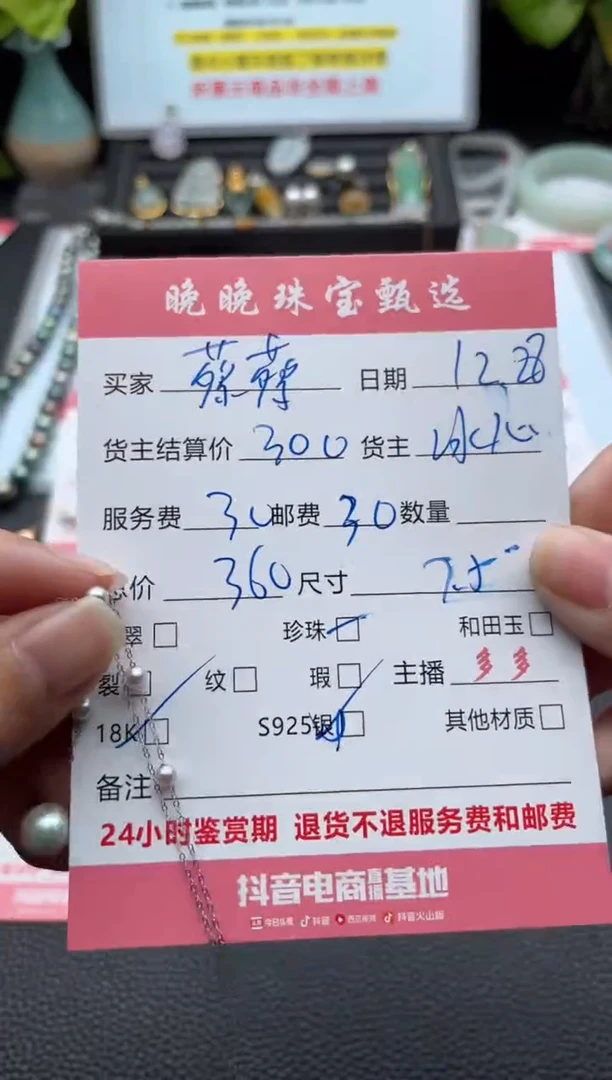 晚晚珠宝甄选
买家 蔡蔡 日期 12.28
货主结算价 300 货主 冰心
服务费 30 邮费 30 数量
总价 360 尺寸 7.5
翠 珍珠 和田玉
裂 纹 瑕 主播 多多
18K S925银 其他材质
备注
24小时鉴赏期 退货不退服务费和邮费
抖音电商直播基地
今日头条 抖音 西瓜视频 抖音火山版